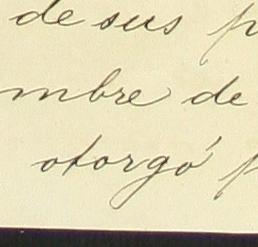 de sus p
mbre de
otorgó p